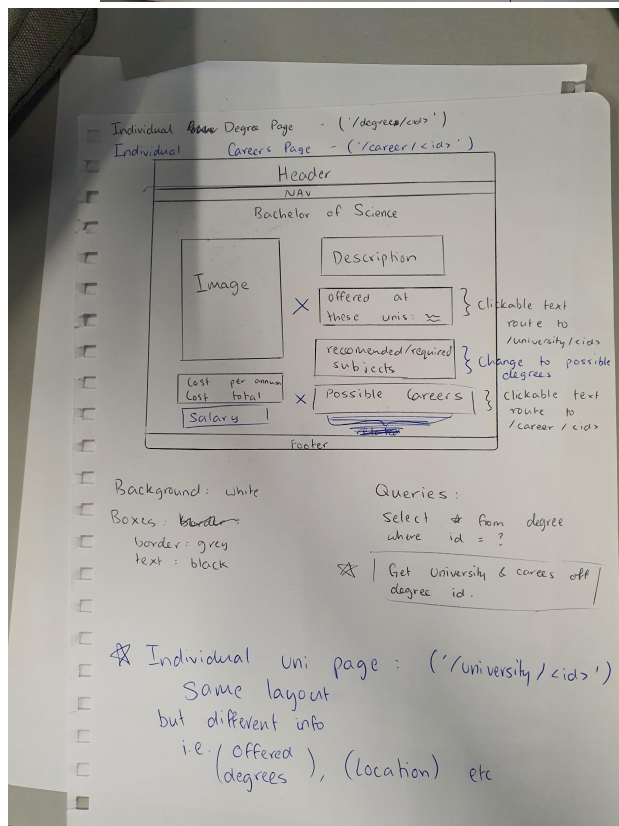 Individual Degree Page - ('/degrees/<id>')
Individual Careers Page - ('/career/<id>')
Header
NAV
Bachelor of Science
Image
Description
X
offered at
these unis:
Clickable text
route to
/university/<id>
reccomended/required
subjects
Change to possible
degrees
Cost per annum
Cost total
Salary
X
Possible Careers
Clickable text
route to
/career/<id>
Footer
Background: white
Boxes: border
border: grey
text: black
Queries:
Select * from degree
where id = ?
Get University & carees off
degree id.
Individual uni page: ('/university/<id>')
Same layout
but different info
i.e. (offered
degrees), (location) etc